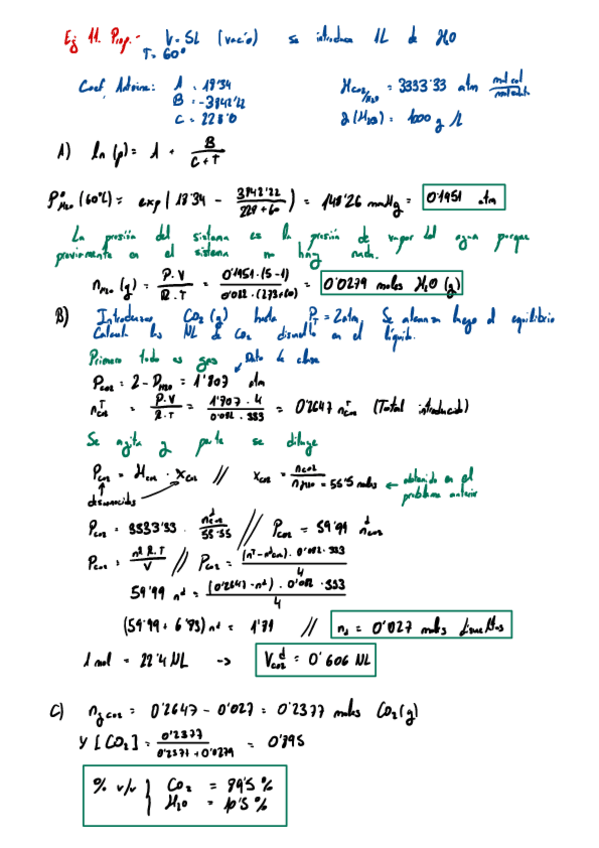 Ej 11. Prop.- V=5L (vacío) se introduce 1L de H2O
T= 60°
Coef. Antoine: A = 18'34
B = -3842'22
C = 228'0
H CO2/H2O = 3333'33 atm mol tot/mol
d(H2O) = 1000 g/L
A) ln(p) = A + B/(C+T)
P°H2O (60°C) = exp(18'34 - 3842'22/(228+60)) = 148'26 mmHg = 0'1951 atm
La presión del sistema es la presión de vapor del agua porque
previamente en el sistema no hay nada.
nH2O (g) = P·V/R·T = 0'1951·(5-1)/0'082·(273+60) = 0'0279 moles H2O (g)
B) Introducimos CO2 (g) hasta PT = 2atm. Se alcanza luego el equilibrio
Calcula los NL de CO2 disuelto en el líquido.
Primero todo es gas Dato de clase
PCO2 = 2 - PH2O = 1'807 atm
nT CO2 = P·V/R·T = 1'807·4/0'082·333 = 0'2647 nT CO2 (Total introducido)
Se agita y parte se diluye
PCO2 = HCO2 · XCO2 // XCO2 = nCO2/nH2O = 55'5 moles ← obtenido en el
desconocidas problema anterior
PCO2 = 3333'33 · nd CO2/55'55 // PCO2 = 59'99 nd CO2
PCO2 = n R.T/V // PCO2 = (nT-nd CO2)·0'082·333/4
59'99 nd = (0'2647-nd)·0'082·333/4
(59'99+6'83) nd = 1'81 // nd = 0'027 moles disueltos
1 mol = 22'4 NL -> Vd CO2 = 0'606 NL
C) ng CO2 = 0'2647 - 0'027 = 0'2377 moles CO2 (g)
Y [CO2] = 0'2377/0'2377+0'0279 = 0'895
% v/v } CO2 = 89'5 %
H2O = 10'5 %